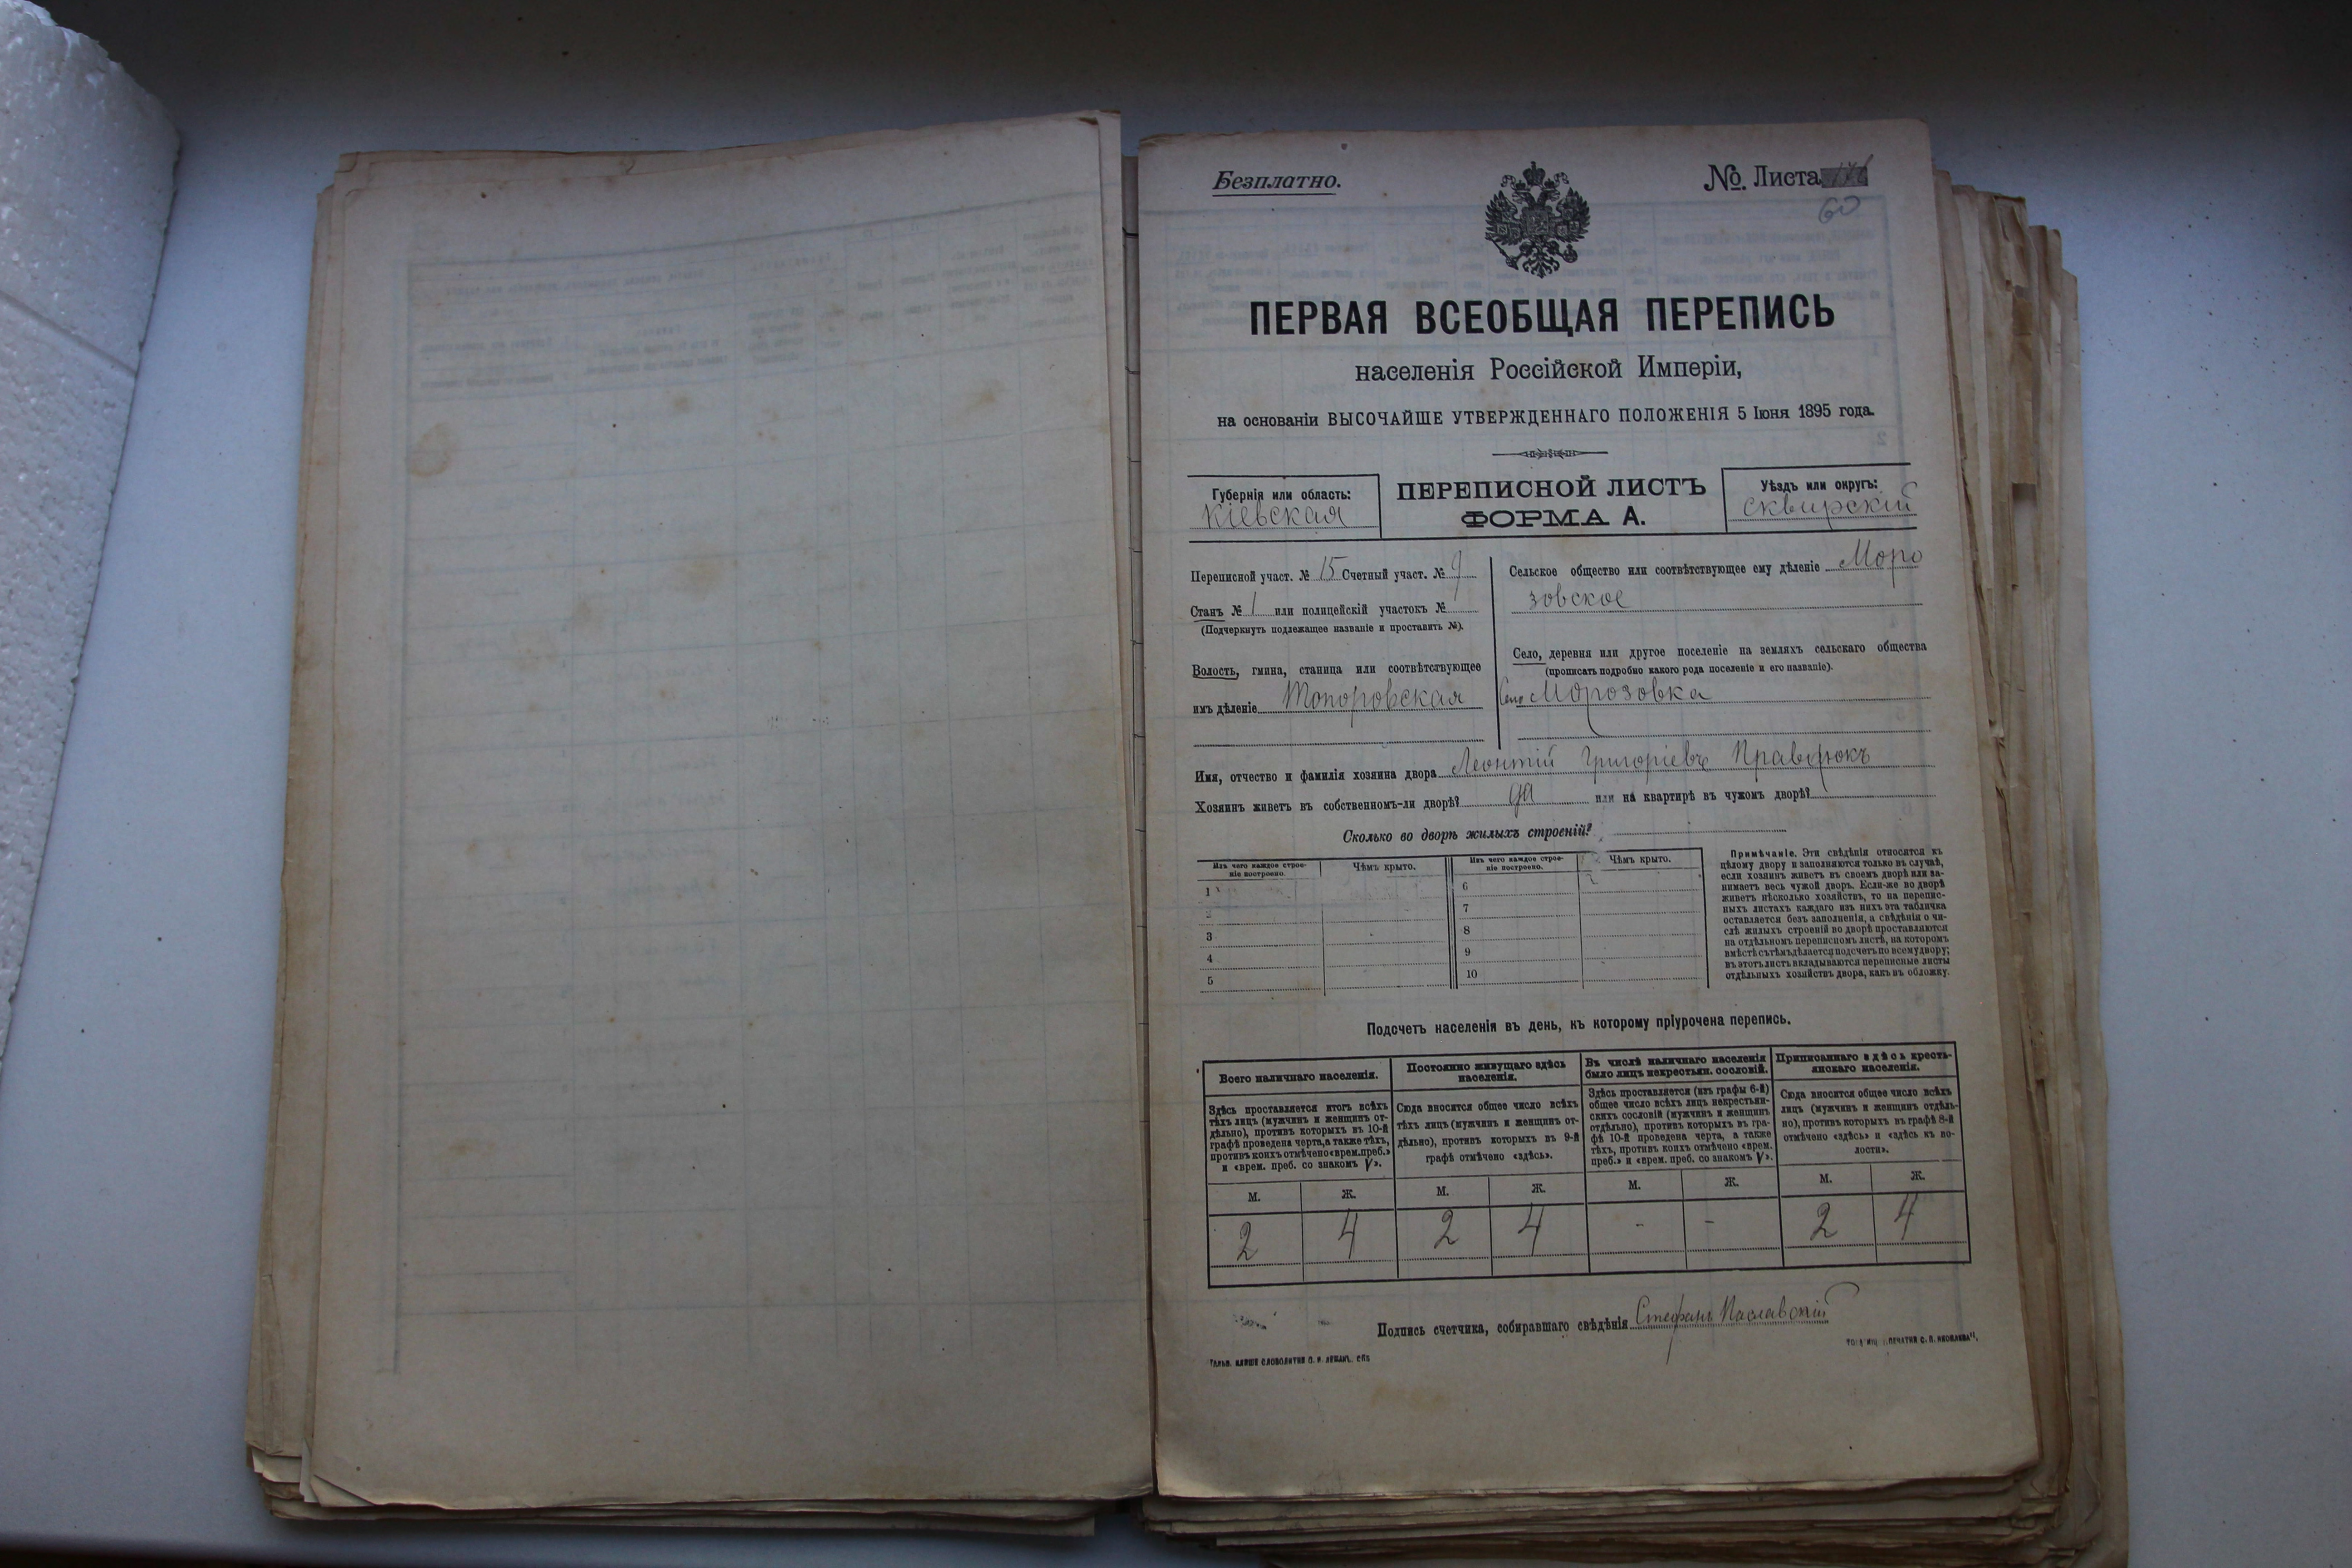 Безплатно.
№. Листа
60
ПЕРВАЯ ВСЕОБЩАЯ ПЕРЕПИСЬ
населенія Россійской Имперіи,
на основаніи ВЫСОЧАЙШЕ УТВЕРЖДЕННАГО ПОЛОЖЕНІЯ 5 Іюня 1895 года.
Губернія или область:
Кіевская
ПЕРЕПИСНОЙ ЛИСТЪ
ФОРМА А.
Уѣздъ или округъ:
Сквирскій
Переписной участ. № 15 Счетный участ. № 9
Станъ № 1 или полицейскій участокъ №
(Подчеркнуть подлежащее названіе и проставить №).
Волость, гмина, станица или соотвѣтствующее
имъ дѣленіе Топоровская
Сельское общество или соотвѣтствующее ему дѣленіе Моро
зовское
Село, деревня или другое поселеніе на земляхъ сельскаго общества
(прописать подробно какого рода поселеніе и его названіе).
Село Морозовка
Имя, отчество и фамилія хозяина двора Леонтій Григоріевъ
Хозяинъ живетъ въ собственномъ-ли дворѣ? да или на квартирѣ въ чужомъ дворѣ?
Сколько во дворѣ жилыхъ строеній?
Изъ чего каждое строе-
ніе построено.
Чѣмъ крыто.
Изъ чего каждое строе-
ніе построено.
Чѣмъ крыто.
1 6
2 7
3 8
4 9
5 10
Примѣчаніе. Эти свѣдѣнія относятся къ
цѣлому двору и заполняются только въ случаѣ,
если хозяинъ живетъ въ своемъ дворѣ или за-
нимаетъ весь чужой дворъ. Если-же во дворѣ
живетъ нѣсколько хозяйствъ, то на перепис-
ныхъ листахъ каждаго изъ нихъ эта табличка
оставляется безъ заполненія, а свѣдѣнія о чи-
слѣ жилыхъ строеній во дворѣ проставляются
на отдѣльномъ переписномъ листѣ, на которомъ
вмѣстѣ съ тѣмъ дѣлается подсчетъ по всему двору;
въ этотъ листъ вкладываются переписные листы
отдѣльныхъ хозяйствъ двора, какъ въ обложку.
Подсчетъ населенія въ день, къ которому пріурочена перепись.
Всего наличнаго населенія.
Здѣсь проставляется итогъ всѣхъ
тѣхъ лицъ (мужчинъ и женщинъ от-
дѣльно), противъ которыхъ въ 10-й
графѣ проведена черта, а также тѣхъ,
противъ коихъ отмѣчено «врем. преб.»
и «врем. преб. со знакомъ V».
Постоянно живущаго здѣсь
населенія.
Сюда вносится общее число всѣхъ
тѣхъ лицъ (мужчинъ и женщинъ от-
дѣльно), противъ которыхъ въ 9-й
графѣ отмѣчено «здѣсь».
Въ числѣ наличнаго населенія
было лицъ некрестьян. сословій.
Здѣсь проставляется (изъ графы 6-й)
общее число всѣхъ лицъ некрестьян-
скихъ сословій (мужчинъ и женщинъ
отдѣльно), противъ которыхъ въ гра-
фѣ 10-й проведена черта, а также
тѣхъ, противъ коихъ отмѣчено «врем.
преб.» и «врем. преб. со знакомъ V».
Приписаннаго здѣсь кресть-
янскаго населенія.
Сюда вносится общее число всѣхъ
лицъ (мужчинъ и женщинъ отдѣль-
но), противъ которыхъ въ графѣ 8-й
отмѣчено «здѣсь» и «здѣсь къ во-
лости».
М. Ж. М. Ж. М. Ж. М. Ж.
2 4 2 4 - - 2 4
Подпись счетчика, собиравшаго свѣдѣнія Стефанъ Паславскій